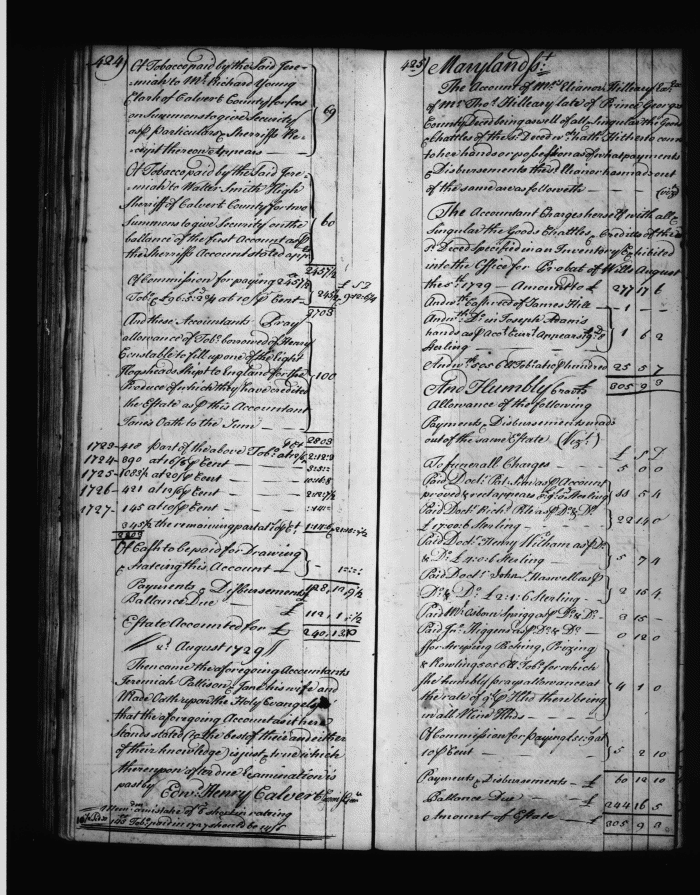 424
Of Tobacco paid by the Said Jere-
miah to Mr Richard Young
Clerk of Calvert County for fees
on Summons to give Security
as p particulars & Sheriffs Re-
ceipt thereon Appears — 69
Of Tobacco paid by the Said Jere-
miah to Walter Smith High
Sheriff of Calvert County for two
Summons to give Security on the
ballance of the first Account as p
the Sheriffs Account stated app 60
2457½
Of Commission for paying 2457½
Tobo & £96:5:2¾ at 10 p Cent 245
2703
And these Accountants Pray
allowance of Tobo borrowed of Henry
Constable to fill up one of the light
Hogsheads Shipt to England for the
Produce of which they have credited
the Estate as p this Accountant
Janes Oath to the Sum — 100
2803
1723 - 418 part of the above Tobo at
1724 - 890 at 10/ p Cent —
1725 - at 10/ p Cent —
1726 - 421 at 12/ p Cent —
1727 - 145 at 10/ p Cent —
345½ the remaining part at
2803
Of Cash to be paid for Drawing
& Stateing this Account —
Payments & Disbursements
Ballance Due — £ 112, 1,
Estate Accounted for £ 240, 13
August 1729
Then came the aforegoing Accountants
Jeremiah Pattison & Jane his wife and
Made Oath upon the Holy Evangels
that the aforegoing Account as it here
Stands stated (to the best of their and either
of their knowledge) is just & true which
thereupon after due Examination is
past by Edwd Henry Calvert Comr Genl
Memdm a mistake of shorts in rateing
Tobo paid in 1727 should be
425
Maryland Sst
The Account of Mrs Eleanor Hilleary Exx
of Mr Thos Hilleary late of Prince Georges
County Decd being as well of all & Singular the Goods
& Chattles of the sd Deced wch hath Hitherto come
to her hands or possession as of what payments
& Disbursements the sd Eleanor has made out
of the same are as followeth — — (vizt)
The Accountant Charges herself with all &
Singular the Goods Chattles & Credits of the
sd Deced Specified in an Inventory Exhibited
into the Office for Probat of Wills August
the 1729 — Amounto £ 277 17 6
And wth Cash recd of James Hill — 1 — —
And wth Do in Joseph Adams
hands as p Accot Currt Appears
Sterling — 1 6 2
And wth 5056 lb Tobo at 10/ p hundred 25 5 7
305 9 3
And Humbly craves
Allowance of the following
Payments & Disbursements made
out of the same Estate (Vizt)
£ S D
To funerall Charges — 5 0 0
Paid Doctr Pat: Sim as p Account
proved & rect appears Sterling 5 4
Paid Doctr Richd as p Do & Do
£17:0:6 Sterling — 22 14 0
Paid Doctr Henry Witham as p Do
& Do £4:0:6 Sterling — 5 7 4
Paid Doctr John Haswell as p
Do & Do £2:1:6 Sterling — 2 15 4
Paid Mr Osborn Sprigg as p Do & Do — 3 15 —
Paid Jno Higgins as p Do & Do — 0 12 0
for Striping Bching, Prizing
& Rowling 5056 lb Tobo for which
she humbly prays allowance at
the rate of 9/ p Hhd there being
in all Nine Hhds — — 4 1 0
Of Commission for paying £51:9 at
10 p Cent — — 5 2 10
Payments & Disbursements — £ 60 12 10
Ballance Due — £ 244 16 5
Amount of Estate — £ 305 9 3